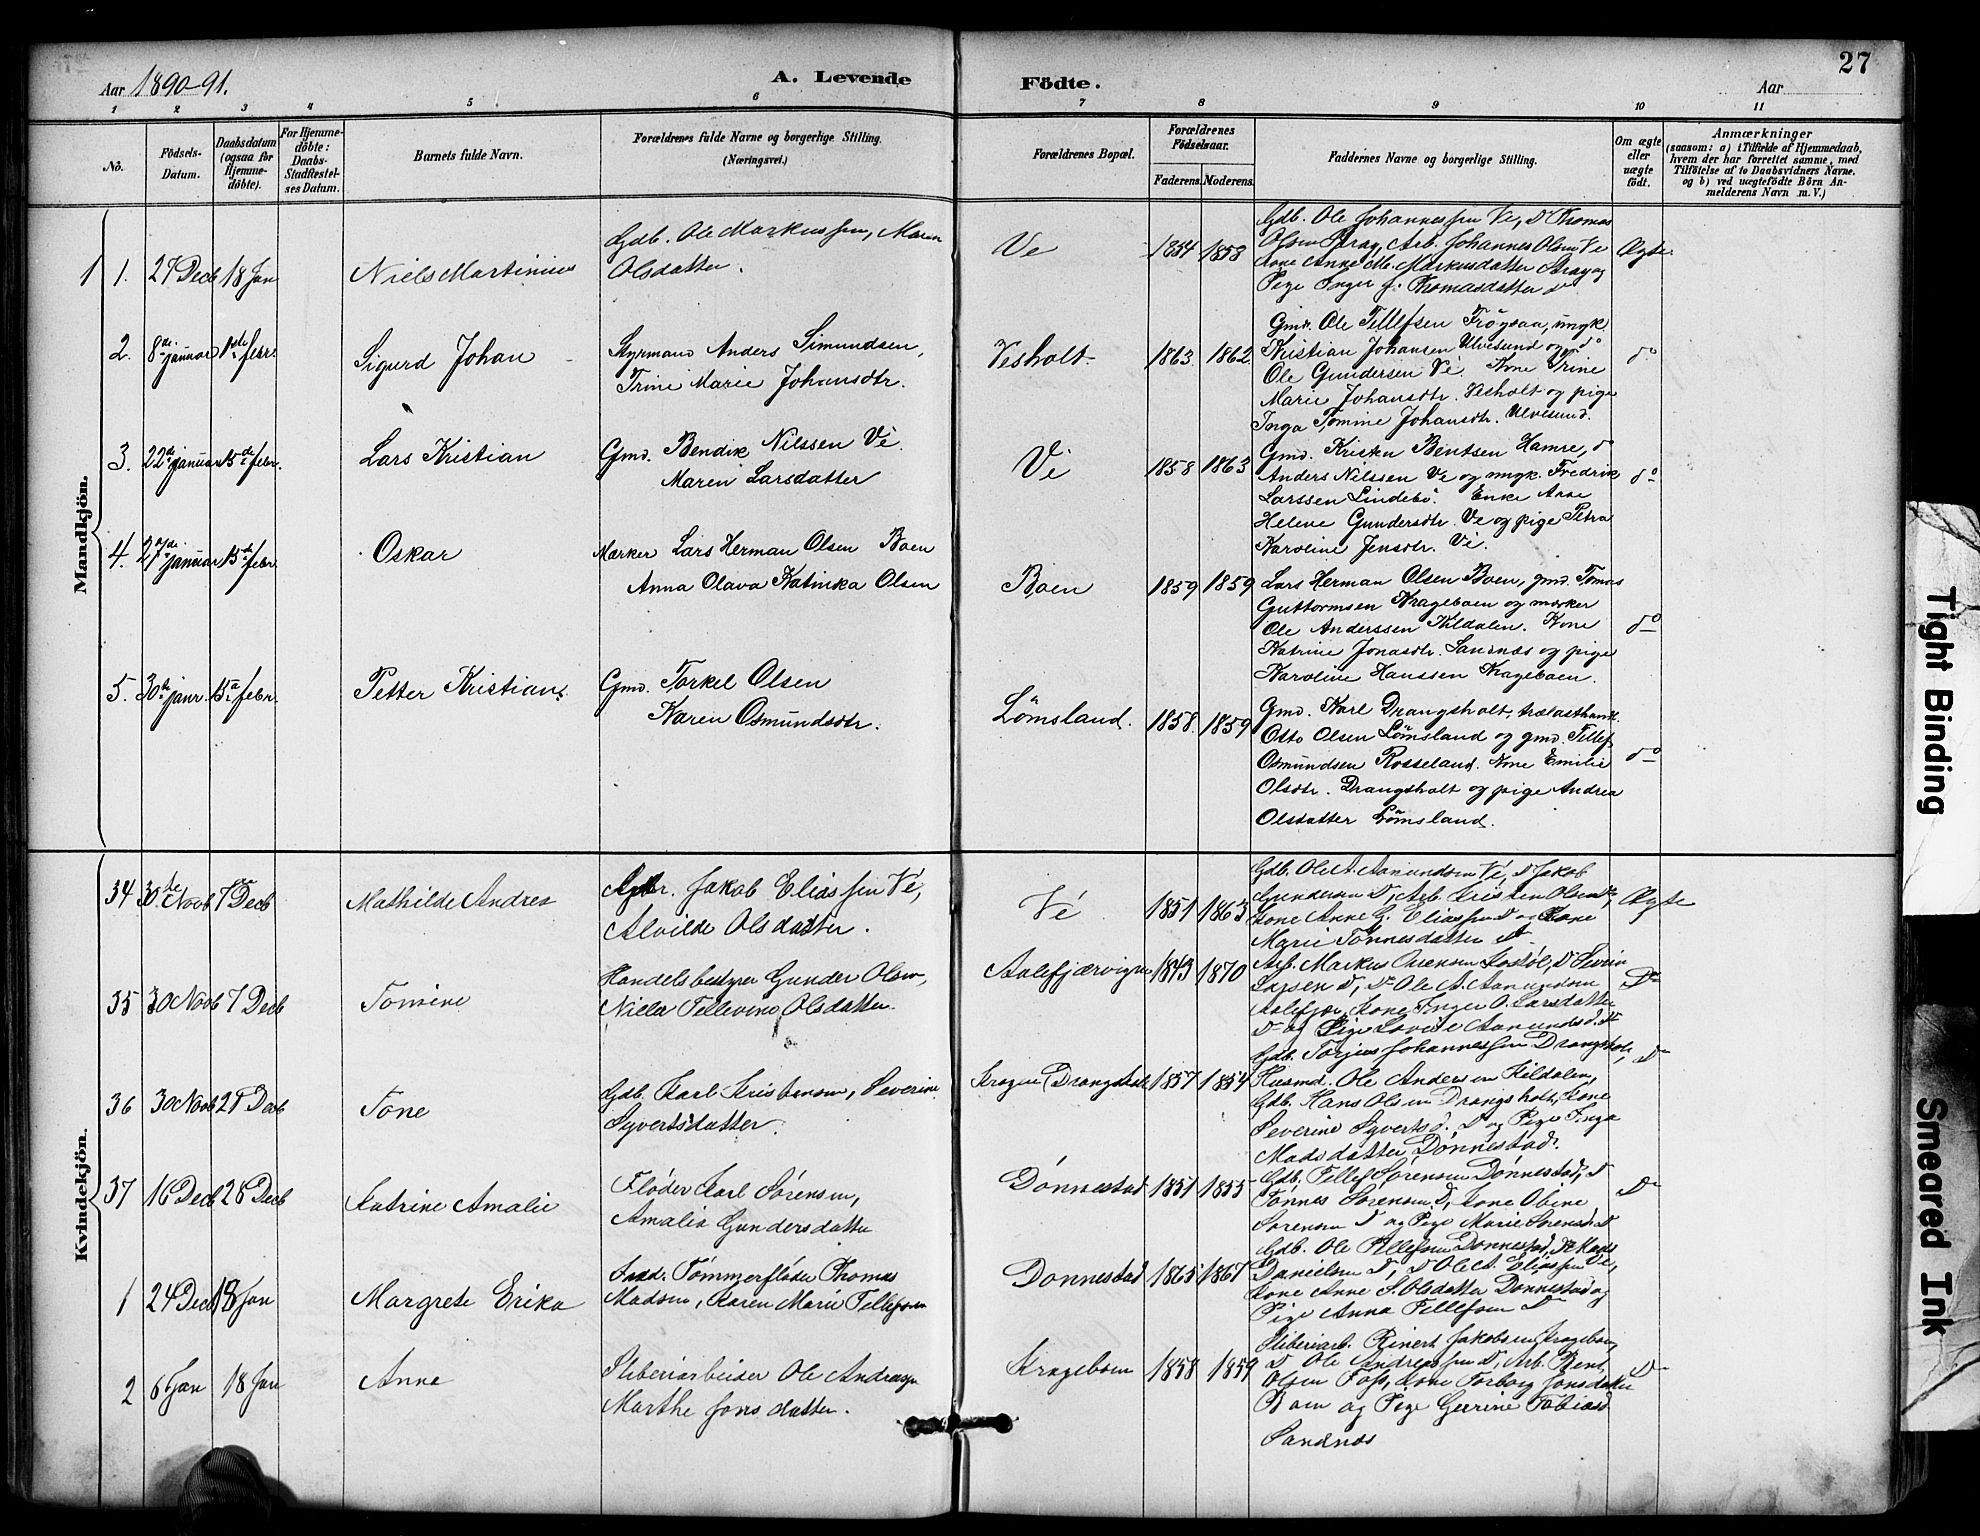 27
Aar 1890-91.
A. Levende Födte.
Aar
1 2 3 4 5 6 7 8 9 10 11
No.
Födsels-
Datum.
Daabsdatum
(ogsaa for
Hjemme-
döbte).
For Hjemme-
döbte:
Daabs-
Stadfæstel-
ses Datum.
Barnets fulde Navn.
Forældrenes fulde Navne og borgerlige Stilling.
(Næringsvei.)
Forældrenes Bopæl.
Forældrenes
Födselsaar.
Faderens. Moderens.
Faddernes Navne og borgerlige Stilling.
Om ægte
eller
uægte
födt.
Anmærkninger
(saasom: a) i Tilfælde af Hjemmedaab,
hvem der har forrettet samme, med
Tilföielse af to Daabsvidners Navne,
og b) ved uægtefödte Börn An-
melderens Navn m. V.)
Mandkjön.
1 1. 27 Decb 18 Jan
Niels Martinius
Gdb. Ole Markussen, Maren
Olsdatter.
Ve
1854 1858
Gdb. Ole Johannessen Ve, Do Thomas
Olsen Stray, Arb. Johannes Olsen Ve
Kone Anne M. Markusdatter Stray og
Pige Inger J. Thomasdatter do
Ægte.
2. 8de januar 1ste febr.
Sigurd Johan
Styrmand Anders Simundsen,
Trine Marie Johansdtr.
Vesholt
1863. 1862.
Gmd. Ole Tellefsen Frøysaa, ungk.
Kristian Johansen Ulvesund og do
Ole Gundersen Vé, Kone Trine
Marie Johansdtr. Vesholt og pige
Inga Tomine Johansdtr. Ulvesund.
do
3. 22de januar 15de febr.
Lars Kristian
Gmd. Bendik Nilssen Ve.
Maren Larsdatter
Vé
1858 1863
Gmd. Kristen Bentsen Hamre, do
Anders Nilssen Ve og ungk. Fredrik
Larssen Lindebö. Enke Aase
Helene Gundersdtr. Ve og pige Petra
Karoline Jensdtr. Vé.
do
4. 27de januar 15de febr.
Oskar
Mærker Lars Herman Olsen Boen
Anna Olava Katinka Olsen
Boen
1859 1859
Lars Herman Olsen Boen, gmd. Tomas
Guttormsen Krageboen og mærker
Ole Anderssen Kildalen. Kone
Katrine Jonasdtr. Sannæs og pige
Karoline Hanssen Krageboen.
do
5. 30te janr. 15de febr.
Petter Kristian.
Gmd. Torkel Olsen
Karen Osmundsdtr.
Lömsland.
1858. 1859
Gmd. Karl Drangsholt, trælasthandl.
Otto Olsen Lömsland og gmd. Tellef
Osmundsen Rosseland. Kone Emilie
Olsdtr. Drangsholt og pige Andrea
Olsdatter Lömsland.
do
Kvindekjön.
34 30te Novb 7de Decb
Mathilde Andrea
Jakob Eliassen Vé,
Alvilde Olsdatter.
Vé
1851 1863
Gdb. Ole A. Aanundsen Vé, Do Jakob
Gundersen Do, Arb. Kristen Olsen Do,
Kone Anne G. Eliassen Do og Kone
Marie Tønnesdatter Do.
Ægte
35 30 Novb 7 Decb
Tomine
Handelsbestyrer Gunder Olsen,
Tellevine Olsdatter.
Aalefjærvigen
1843 1870
Arb. Markus
Larsen Do, Do Ole A. Aanundsen
Aalefjær, Kone Inger O. Larsdatter
Do og Pige Lovise Aanunds d. Do
Do
36 30 Novb 28 Decb
Tone
Gdb. Karl Kristensen, Severine
Syvertsdatter.
Kragen (Drangsholt
1857 1854
Gdb. Torjus Johannessen Drangsholt,
Husmd. Ole Andersen Kildalen,
Gdb. Hans Olsen Drangsholt, Kone
Severine Syverts d. Do og Pige Inga
Madsdatter Dønnestad.
Do
37 16 Decb 28 Decb
Katrine Amalie
Fløder Karl Sørensen,
Amalia Gundersdatter
Dønnestad
1851 1855
Gdb. Tellef Sørensen Dønnestad, Do
Tønnes Sørensen Do, Kone Obine
Sørensen Do og Pige Marie Sørensd. Do
Do
1 24 Decb 18 Jan
Margrete Erika
Tømmerfløder Thomas
Madsen, Karen Marie Tellefsen
Dønnestad
1865 1867
Gdb. Ole Tellefsen Dønnestad, Do Mads
Danielsen Do, Do Ole A. Eliassen Ve,
Kone Anne S. Olsdatter Dønnestad og
Pige Anna Tellefsen Do
2 6 Jan 18 Jan
Anne
Sliberiarbeider Ole Andreasen
Marthe Jonsdatter.
Krageboen
1858 1859
Sliberiarb. Reinert Jakobsen Krageboen,
Do Ole Andreassen Do, Arb. Bent
Olsen Foss, Kone Torborg Jonsdatter
Boen og Pige Gurine Tobiasd
Sandnæs
Do
Tight Binding
Smeared Ink